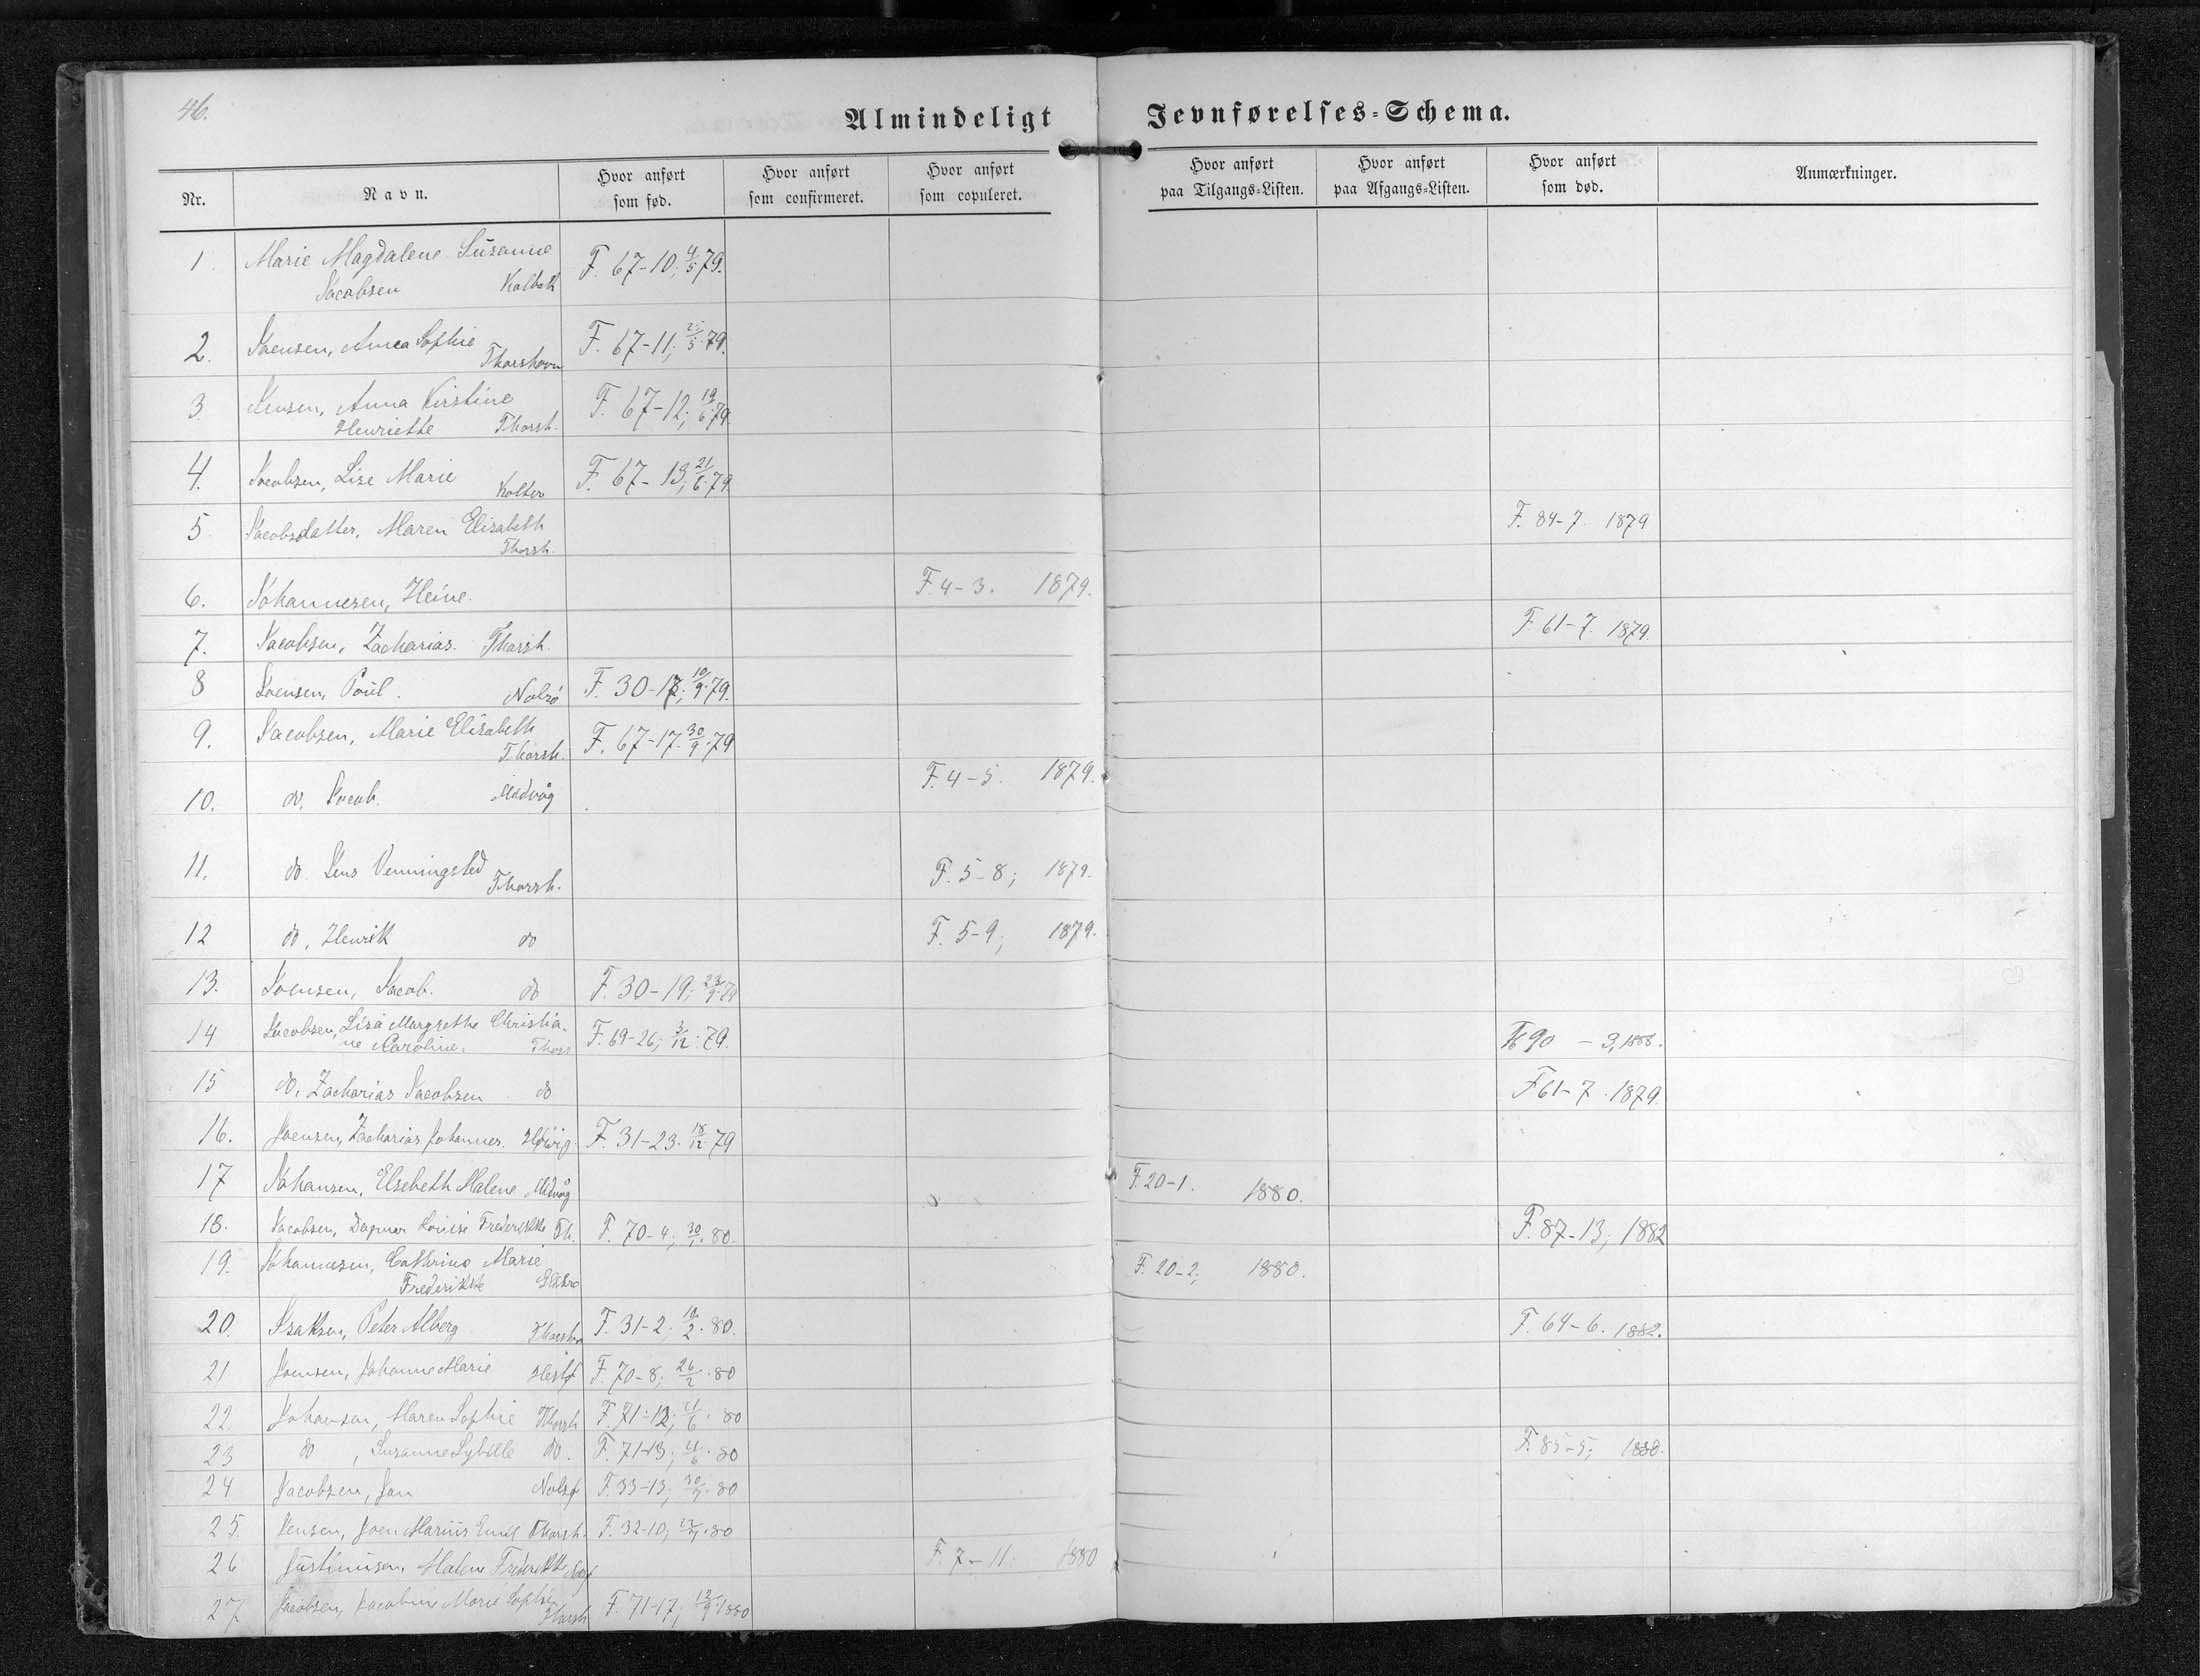 46.
Almindeligt Jevnførelses-Schema.
Nr. Navn. Hvor anført som fød. Hvor anført som confirmeret. Hvor anført som copuleret. Hvor anført paa Tilgangs-Listen. Hvor anført paa Afgangs-Listen. Hvor anført som død. Anmærkninger.
1. Marie Magdalene Susanne F. 67-10; 4/5 79.
Jacobsen
2. Joensen, Anna Sophie F. 67-11; 79.
Thorshavn
3. Jensen, Anna Kirstine F. 67-12; 19/6 79.
Henriette Thorsh.
4. Jacobsen, Lise Marie Kolter F. 67-13; 21/6 79
5. Jacobsdatter, Maren Elisabeth F. 84-7. 1879
Thorsh.
6. Johannesen, Heine. F. 4-3. 1879.
7. Jacobsen, Zacharias. Thorsh. F. 61-7. 1879.
8 Joensen, Poul. Nolsö F. 30- 10/9 79.
9. Jacobsen, Marie Elisabeth F. 67-17. 30/9 79
Thorsh.
10. do, Jacob. Midvåg F. 4-5. 1879.
11. do Jens Venningsted Thorsh. F. 5-8; 1879.
12 do, Henrik do F. 5-9; 1879.
13. Joensen, Jacob. do F. 30-19; 23/9 79
14 Jacobsen, Lisa Margrethe Christia- F. 69-26; 3/12 79. 90-3, 1888.
ne Caroline. Thors
15 do, Zacharias Jacobsen do F 61-7. 1879.
16. Joensen, Zacharias Johannes. F. 31-23. 18/12 79
17 Johansen, Elsebeth Malene Midvåg F. 20-1. 1880.
18. Jacobsen, Dagmar Louise Frederikke Th. F. 70-4; 30/1 80. F. 87-13; 1882
19. Johannesen, Cathrine Marie F. 20-2; 1880.
Frederikke
20. Isaksen, Peter Alberg Thorshavn F. 31-2; 10/2 80. F. 64-6. 1882.
21 Joensen, Johanne Marie Hestø F. 70-8; 26/2 80
22. Johansen, Maren Sophie Thorsh F. 71-12; 11/6 80
23 do, Susanne Sybille do. F. 71-13; 11/6 80 F. 85-5; 1880.
24 Jacobsen, Jan Nolsø F. 33-13; 80
25. Jensen, Joen Marius Emil Thorsh. F. 32-10; 80
26 Justinusen, Malene Frederikke F. 7-11; 1880
27 Jacobsen, Jacobine Marie Sophie F. 71-17; 1880
Thorsh